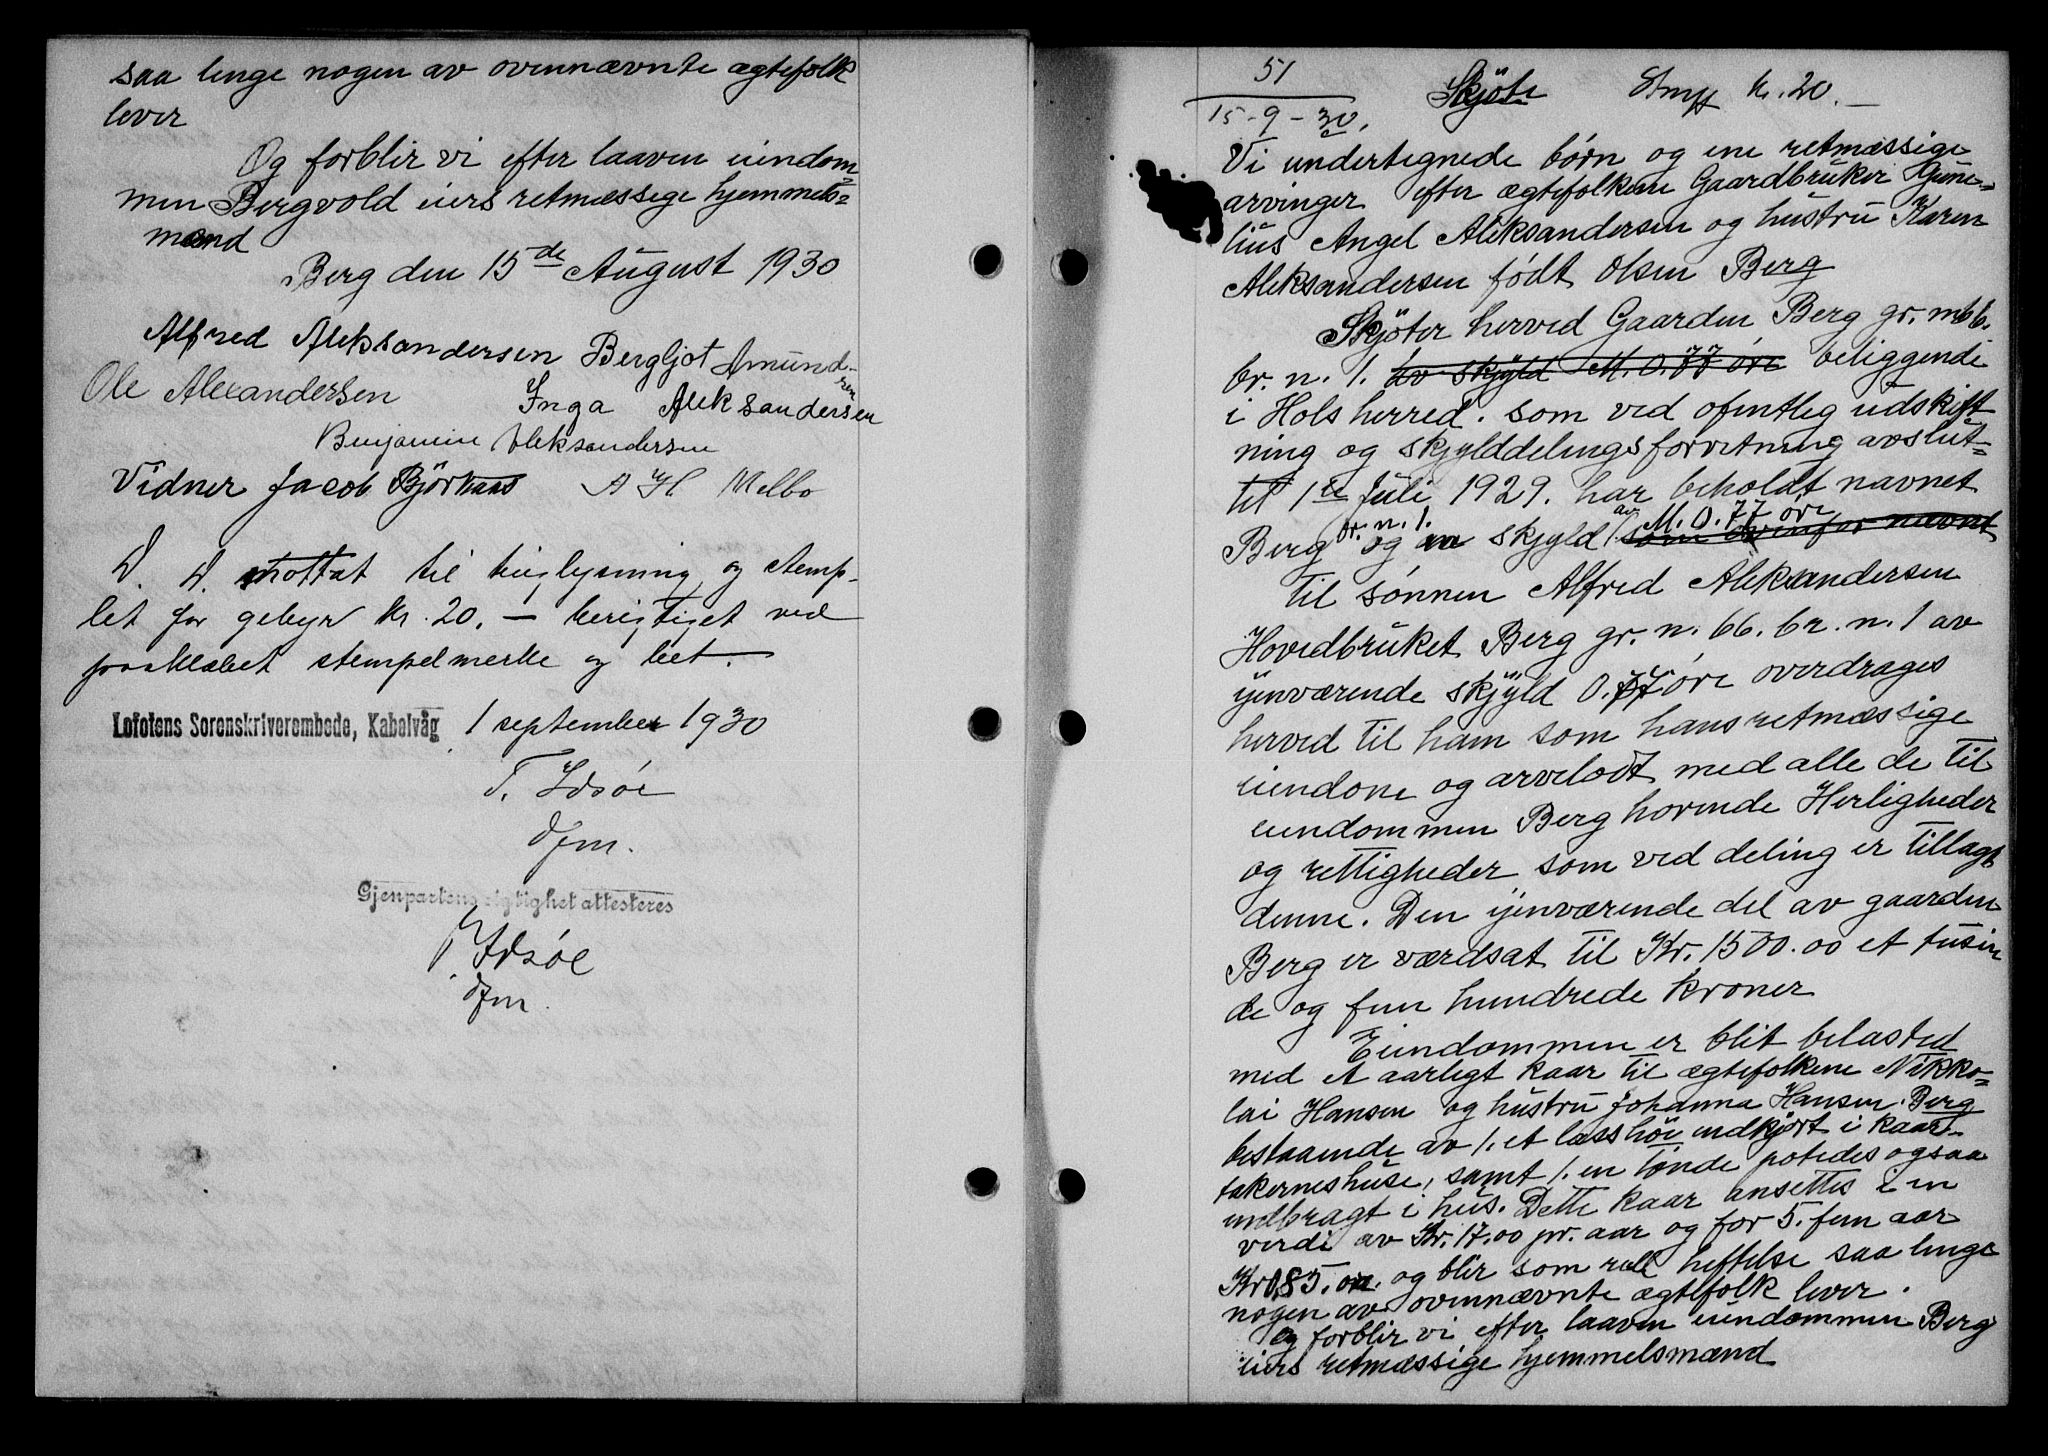 saa lenge nogen av ovennævnte ægtefolk
lever
Og forblir vi efter laaven eiendom=
men Bergvold eiers retmæssige hjemmels=
mænd
Berg den 15de August 1930
Alfred Aleksandersen Bergljot Amund-
sen
Ole Alexandersen Inga Aleksandersen
Benjamin Aleksandersen
Vidner Jacob Björhaas A H Melbo
D. D. mottat til tinglysning og stemp-
let for gebyr kr. 20. — berigtiget ved
paaklæbet stempelmerke og
Lofotens Sorenskriverembede, Kabelvåg 1 september 1930
T. Idsöe
dfm.
Gjenpartens rigtighet attesteres
T Idsöe
dfm.
51
15-9-30.
Skjöte Stmpl kr. 20. —
Vi undertegnede børn og ene retmæssige
arvinger efter ægtefolkene Gaardbruker Hjune=
lius Angel Aleksandersen og hustru Karen
Aleksandersen født Olsen Berg
Skjöter herved Gaarden Berg gr. n 66.
br. n. 1. av skjyld M. 0.77 öre beliggende
i Hols herred. som ved ofentleg udskift
ning og skjylddelingsforretning avslut=
tet 1ste Juli 1929. har beholdt navnet
br. n. 1. av M. 0.77 öre
Berg og skjyld som ovenfor nævnt
til sønnen Alfred Aleksandersen
Hovedbruket Berg gr. n. 66. br. n. 1 av
ijenværende skjyld 0.77 öre overdrages
herved til ham som hans retmæssige
eiendone og arvelodt med alle de til
eiendommen Berg hørende Herligheder
og rettigheder som ved deling er tillagt
denne. Den ijenværende del av gaarden
Berg er værdsat til Kr. 1500.00 et tusin
de og fem hundrede kroner
Eiendommen er blit belasted
med et aarligt kaar til ægtefolkene Nikko=
lai Hansen og hustru Johanna Hansen Berg
bestaaende av 1. et læss höi indkjört i kaar-
takerneshuse, samt 1. en tønde potedes ogsaa
indbragt i hus. Dette kaar ansettes i en
verdi av Kr. 17.00 pr. aar og for 5. fem aar
Kr 85.00. og blir som reell heftelse saa lenge
nogen av ovennævnte ægtefolk lever.
og forblir vi efter laaven eiendommen Berg
eiers retmæssige hjemmelsmænd